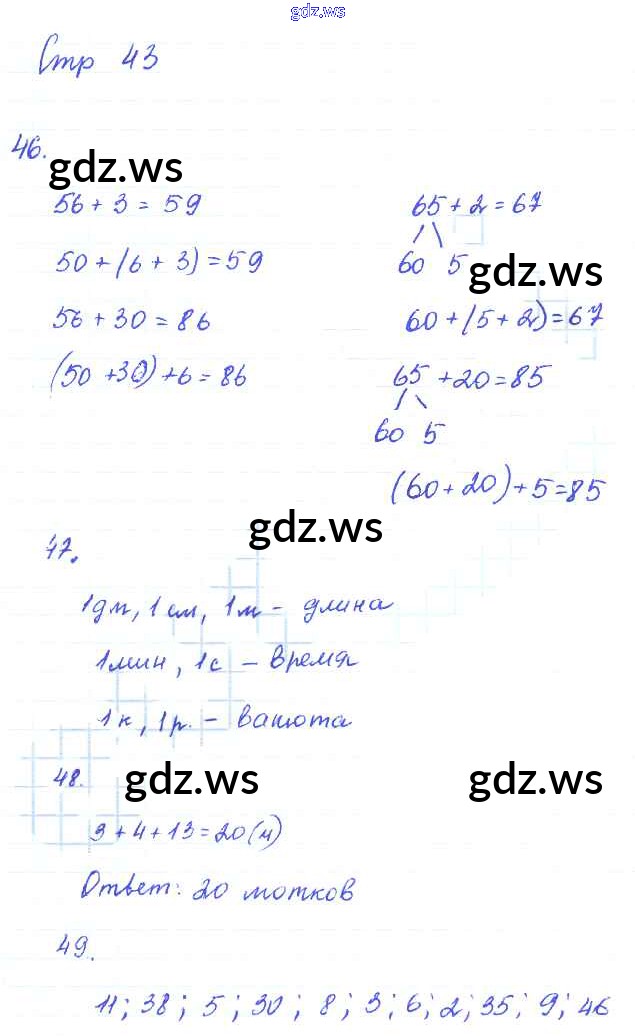 gdz.ws
Стр 43
46.
gdz.ws
56 + 3 = 59
65 + 2 = 67
60 5
gdz.ws
50 + (6 + 3) = 59
56 + 30 = 86
60 + (5 + 2) = 67
(50 + 30) + 6 = 86
65 + 20 = 85
60 5
(60 + 20) + 5 = 85
gdz.ws
47.
1дм, 1 см, 1м - длина
1мин, 1с - время
1к, 1р. - валюта
48.
gdz.ws gdz.ws
3 + 4 + 13 = 20 (м)
Ответ: 20 мотков
49.
11; 38; 5; 30; 8; 3; 6; 2; 35; 9; 46